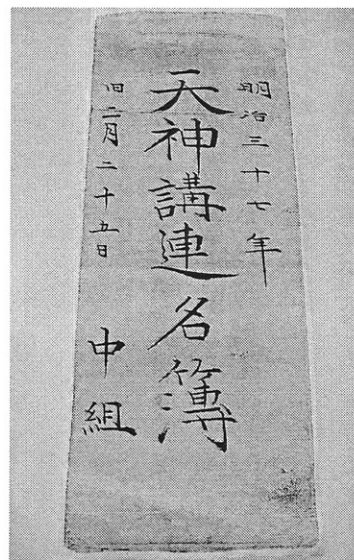 明治三十七年
天神講連名簿
旧二月二十五日
中組